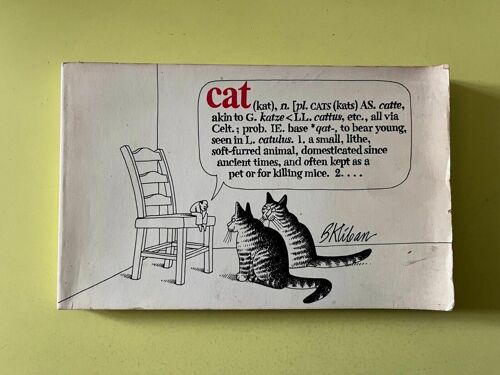 cat (kat), n. [pl. CATS (kats) AS. catte,
akin to G. katze < LL. cattus, etc., all via
Celt.; prob. IE. base *qat-, to bear young,
seen in L. catulus. 1. a small, lithe,
soft-furred animal, domesticated since
ancient times, and often kept as a
pet or for killing mice. 2. . . .
B. Kliban